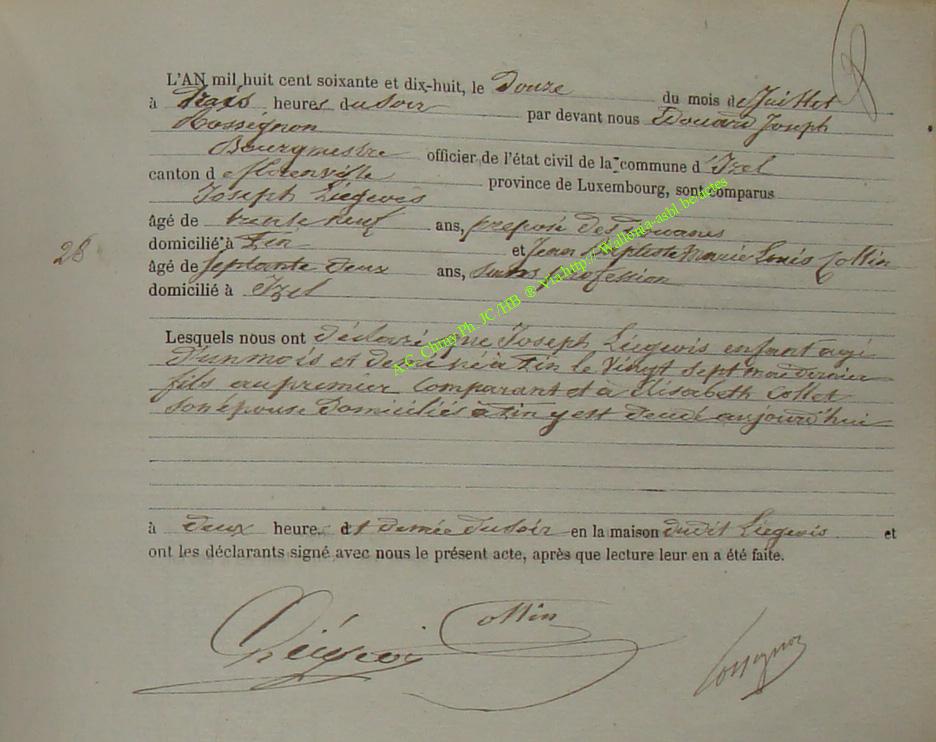 L'AN mil huit cent soixante et dix-huit, le Douze du mois de Juillet
à trois heures du soir par devant nous Edouard Joseph
Rossignon
Bourgmestre officier de l'état civil de la commune d'Izel
canton de florenville province de Luxembourg, sont comparus
Joseph Liégeois
âgé de trente neuf ans, préposé des Douanes
domicilié à Pin et Jean Baptiste Marie Louis Collin
28
âgé de septante deux ans, sans profession
domicilié à Izel
Lesquels nous ont déclaré que Joseph Liégeois enfant agé
D'un mois et demi né à Pin le Vingt sept mai dernier
fils au premier Comparant et à Elisabeth Collet
son épouse Domiciliés à Pin y est décédé aujourd'hui
à deux heures et demie du soir en la maison dudit Liégeois et
ont les déclarants signé avec nous le présent acte, après que lecture leur en a été faite.
Collin
Liégeois
Rossignon
A.C. Chiny Ph. JC/HB ® Via http://Wallonia-asbl.be/actes